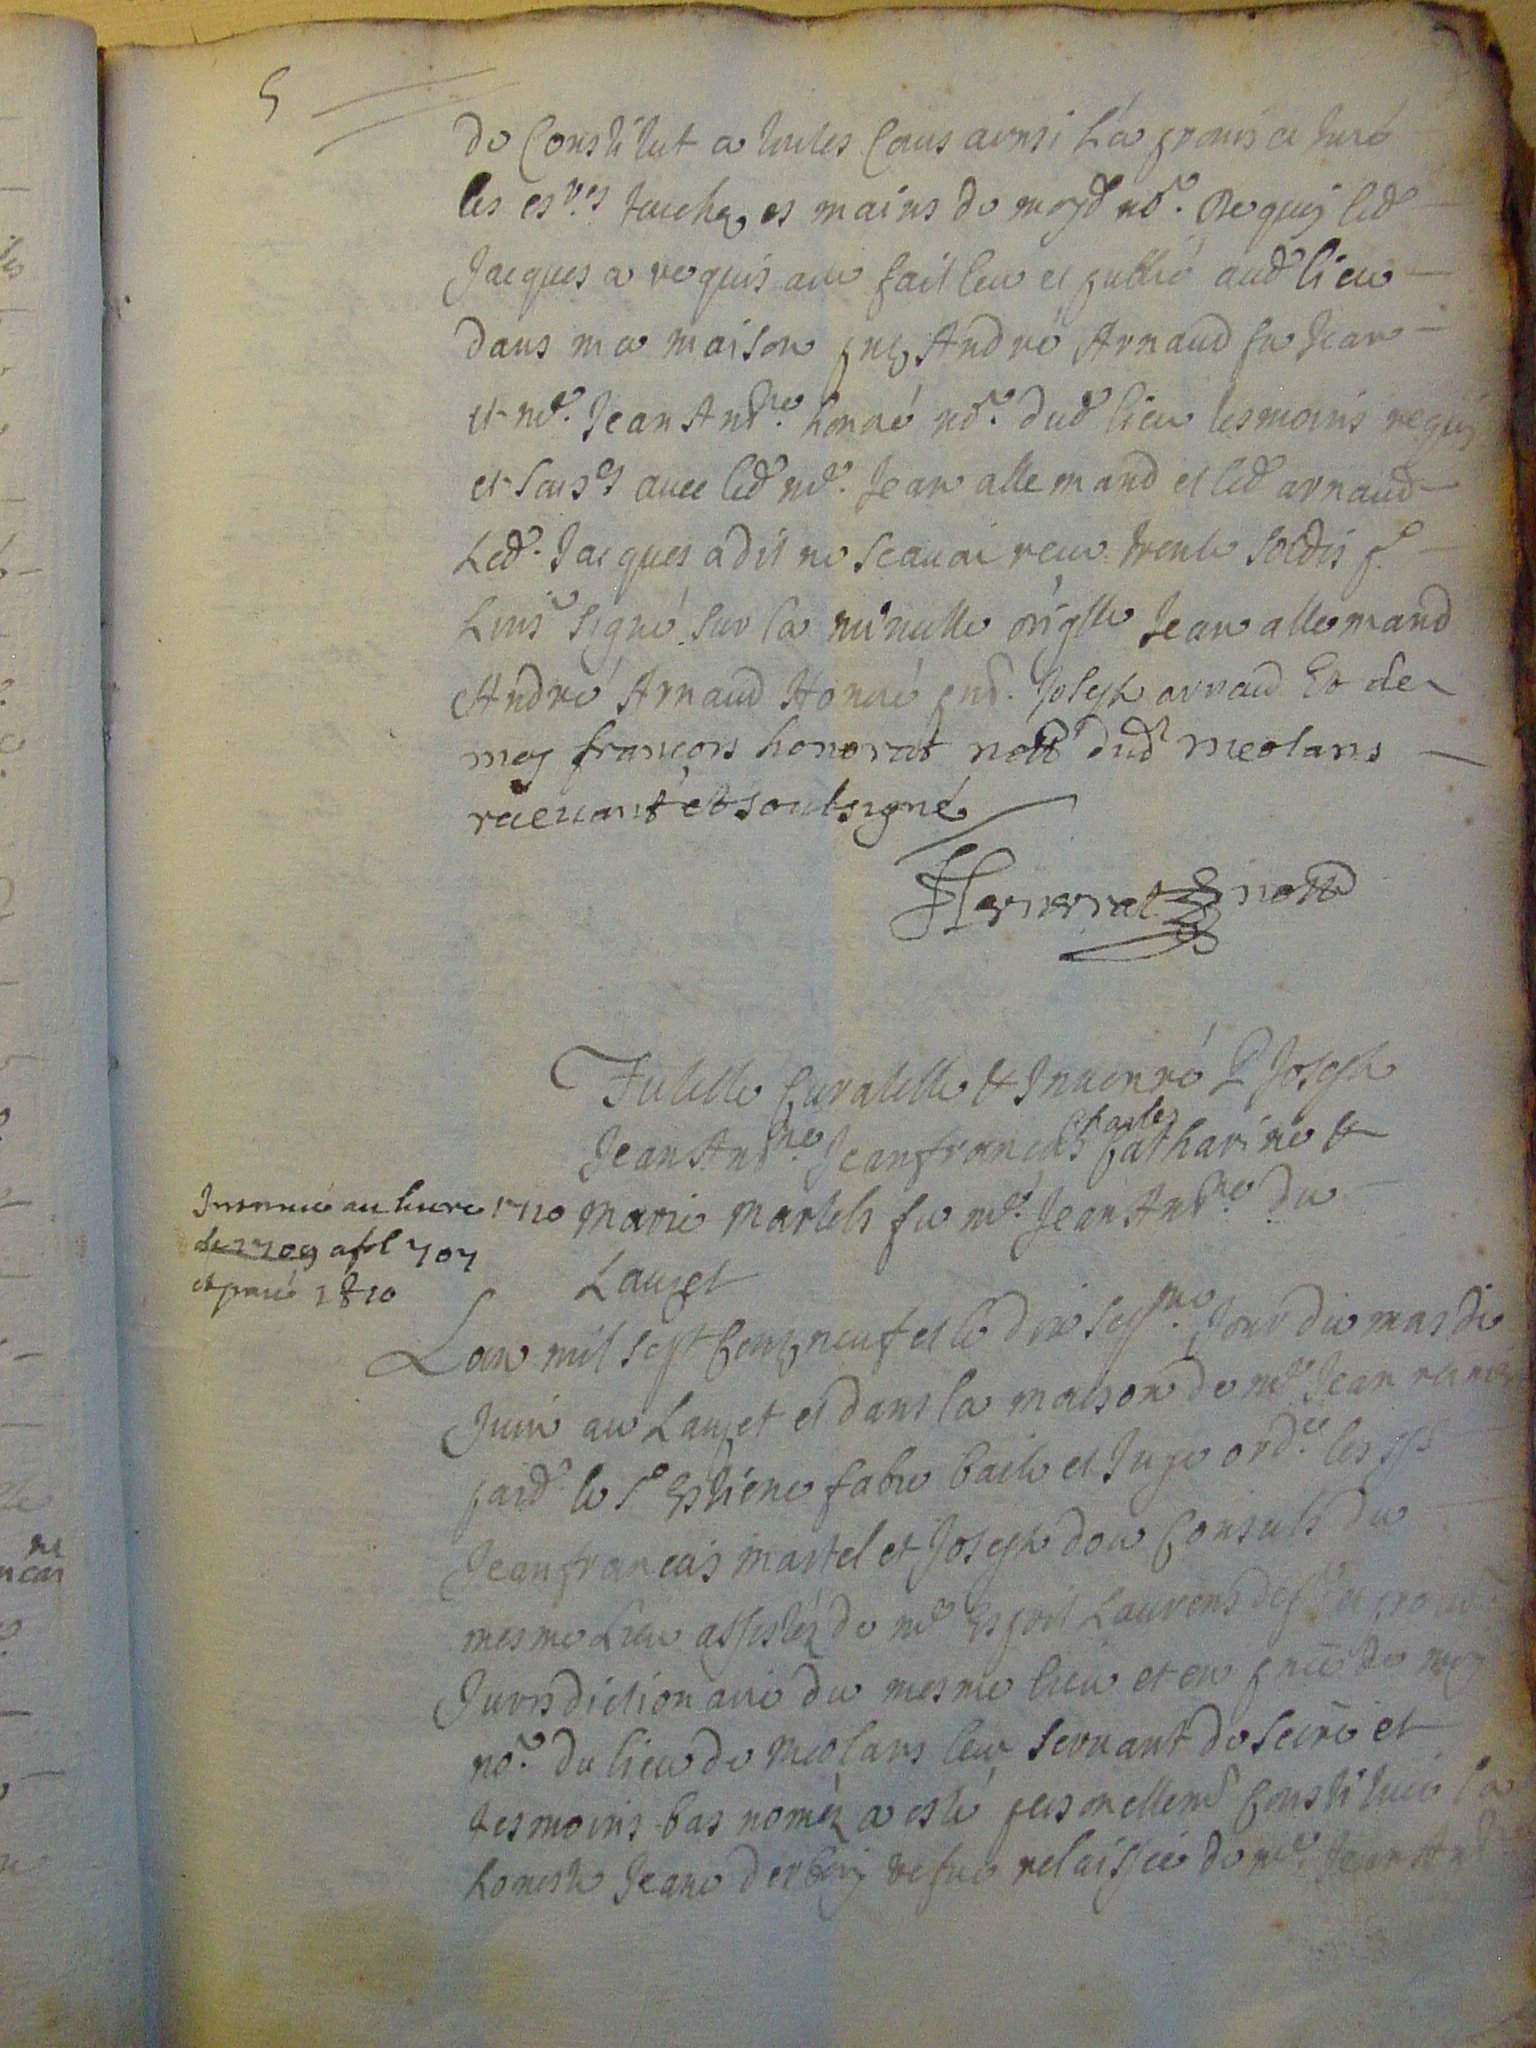 5
de Constitut a toutes Caus ainsi L'a promis et Juré
les es.res touche es mains de moyd no.re De quoy led
Jacques a requis acte fait leu et publié aud lieu
dans ma maison pnts André Arnaud fu Jean
et me. Jean Antne. honoré no.re dud lieu tesmoins requis
et sousés avec led me. Jean allemand et led arnaud
Led. Jacques a dit ne scavoir
signé sur la minutte origlle Jean allemand
André Arnaud Honoré Joseph arnaud Et de
moy françois honorat nottre dud meolans
recevant et soubsigné
Honnorat nottre
Tutelle Curatelle & Inuenre Pr Joseph
Jean Antne. Jean françois Charles Catharine &
marie martels fu me. Jean Antne. du
Lauzet
Insinué au liure 1710
de 1709 a fol 707
Lan mil sept Cents neuf et le dix septme. Jour du mois de
Juin au Lauzet et dans la maison de me Jean
pard. le Sr Estiene fabre baile et Juge ordre. les srs
Jean françois martel et Joseph dou Consuls du
mesme Lieu assistéz de me Esprit Laurens
Jurisdictionaire du mesme lieu et en pnce de moy
no.re du lieu de meolans leur seruant de secre et
tesmoins bas noméz a esté personellemt Constituée la
honeste Jeane refue relaissée de me. Jean Antne